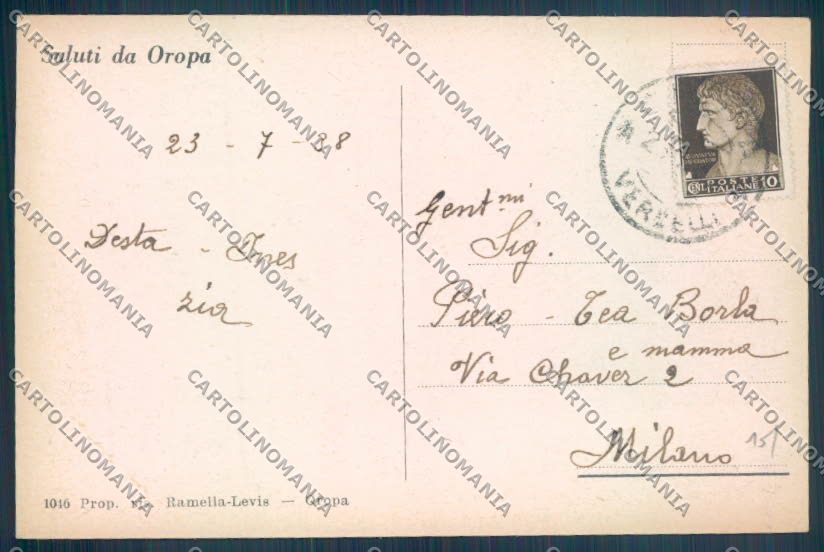 Saluti da Oropa
23 - 7 - 38
Desta - Ines
zia
Gent.mi
Sig.
Piero - Tea Borla
e mamma
Via Chaver 2
Milano
15/
1046 Prop. ris. Ramella-Levis — Oropa
POSTE
CENT. ITALIANE 10
VERCELLI
CARTOLINOMANIA